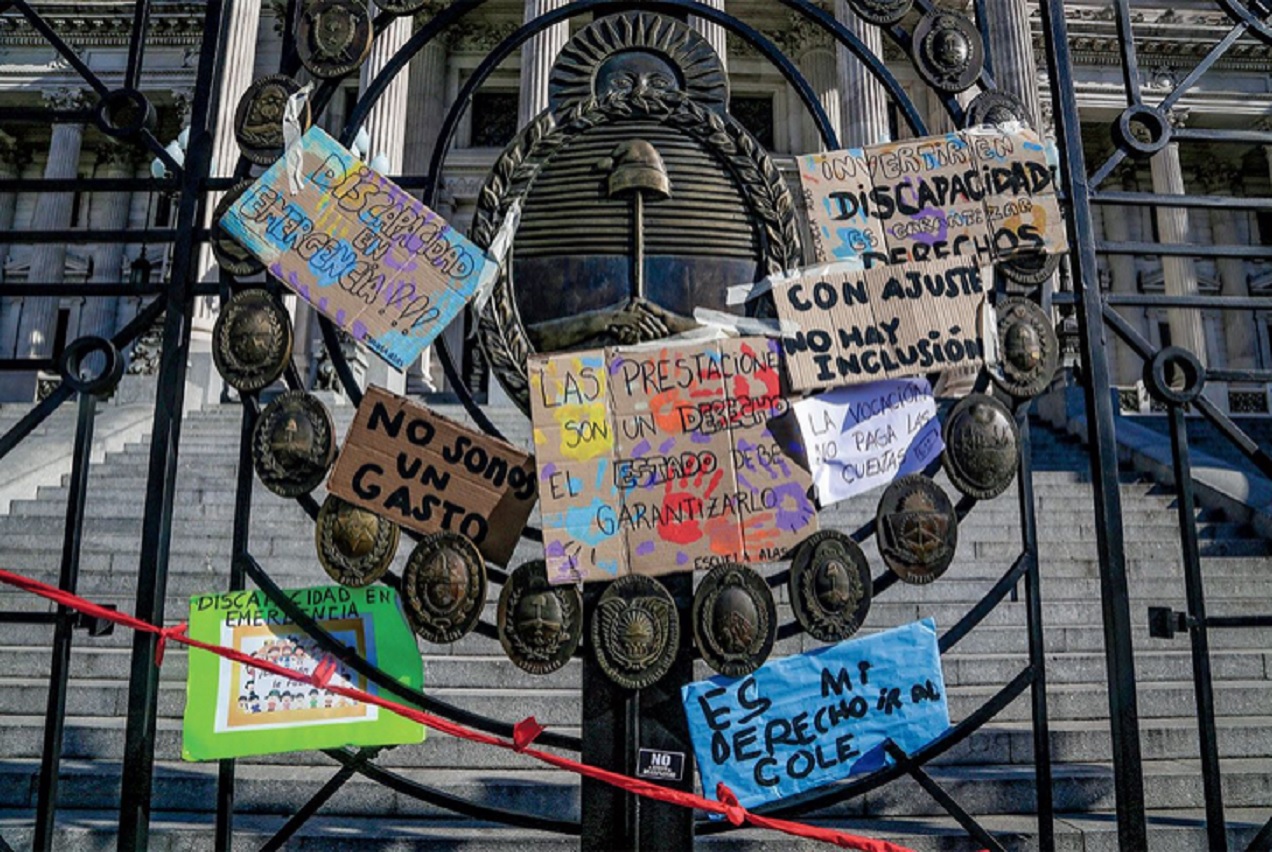 DISCAPACIDAD
EN
EMERGENCIA!!!
INVERTIR EN
DISCAPACIDAD
ES GARANTIZAR
DERECHOS
CON AJUSTE
NO HAY
INCLUSIÓN
NO SOMOS
UN
GASTO
LAS PRESTACIONE
SON UN DERECHO
EL ESTADO DEBE
GARANTIZARLO
ESCUELA ALAS
LA VOCACIÓN
NO PAGA LAS
CUENTAS
DISCAPACIDAD EN
EMERGENCIA
ES MI
DERECHO IR AL
COLE
NO